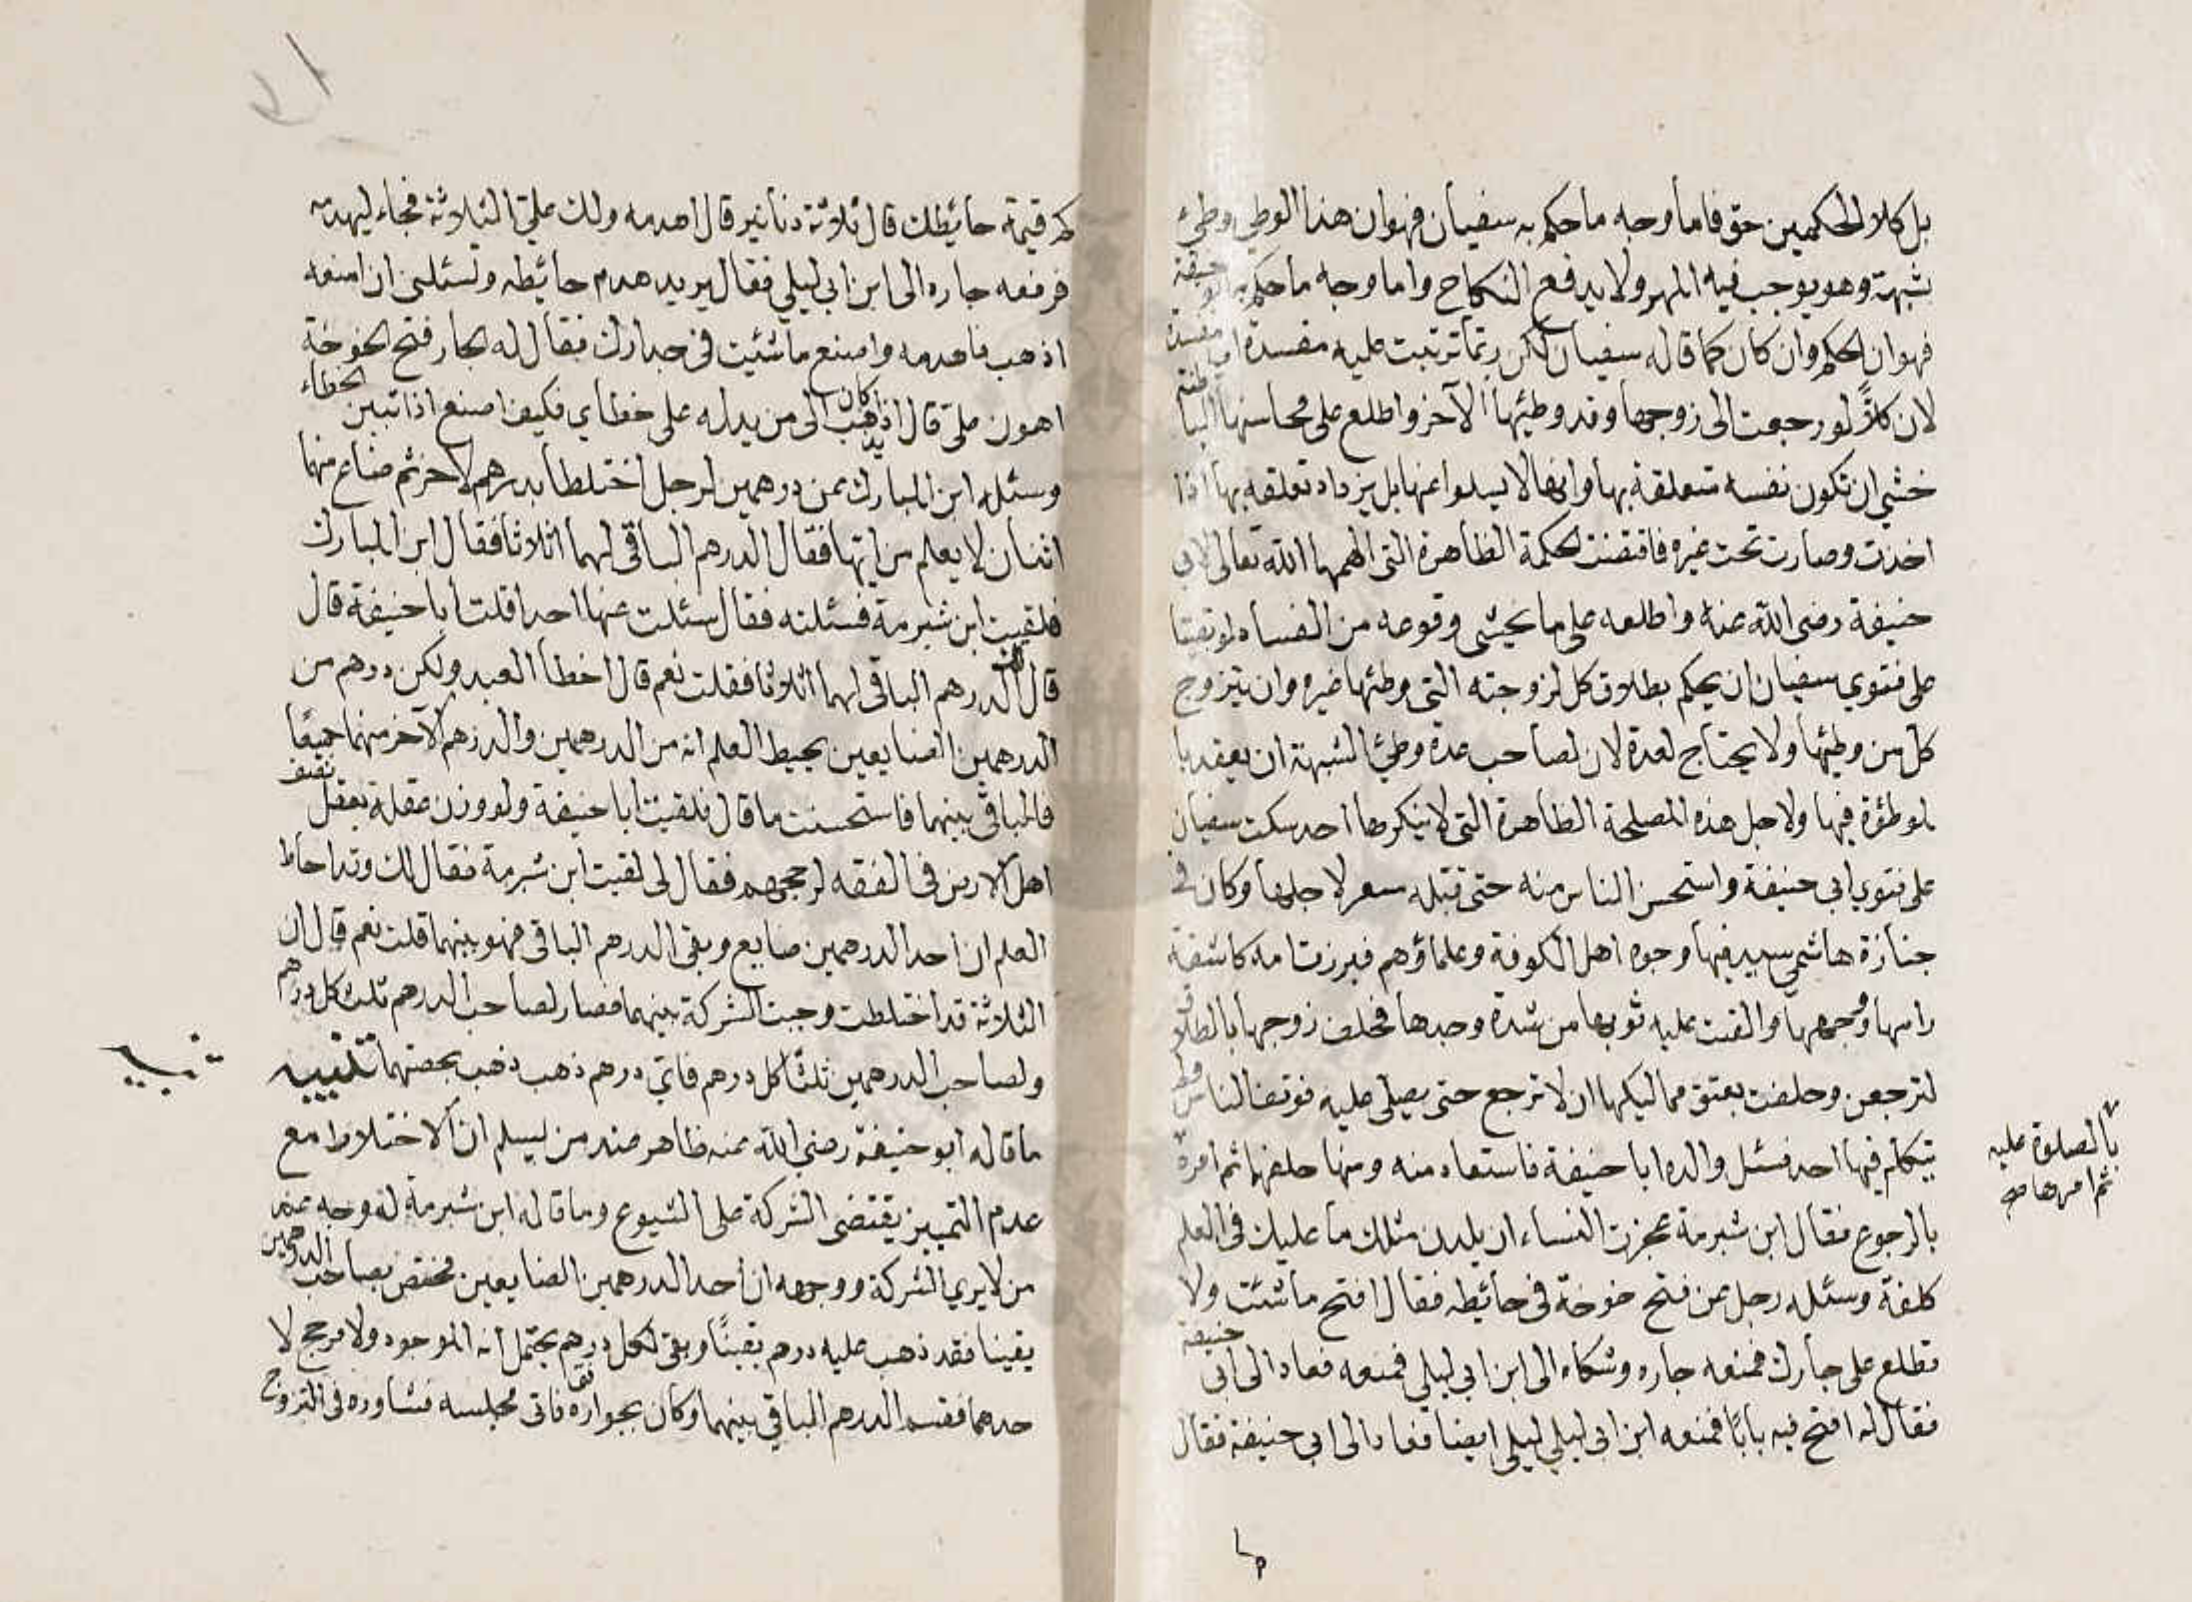 بل كلا الحكمين حق فاما وجه ما حكم به سفيان فهو ان هذا الوطي وطئ
شبهة وهو يوجب فيه المهر ولا يرفع النكاح واما وجه ما حكم به ابو حنيفة
فهو ان الحكم وان كان كما قاله سفيان لكن ربما ترتبت عليه مفسدة اي مفسدة
لان كلاً لو رجعت الى زوجها وقد وطيها الآخر واطلع على محاسنها الباطنة
خشي ان تكون نفسه متعلقة بها وانها لا يسلوا عنها بل يزداد تعلقه بها اذا
اخذت وصارت تحت غيره فاقتضت الحكمة الظاهرة التى الهمها الله تعالى لابى
حنيفة رضى الله عنه واطلعه على ما يخشى وقوعه من الفساد لو بقيتا
على فتوي سفيان ان يحكم بطلاق كل لزوجته التى وطئها غيره وان يتزوج
كل من وطيها ولا يحتاج لعدة لان لصاحب عدة وطئ الشبهة ان يعقد با
لموطؤة فيها ولاجل هذه المصلحة الظاهرة التى لا ينكرها احد سكت سفيان
على فتوي ابي حنيفة واستحسن الناس منه حتى قبله مسعر لاجلها وكان في
جنازة هاشمي سيد فيها وجوه اهل الكوفة وعلماؤهم فبرزت امه كاشفة
راسها ووجهها والقت عليه ثوبها من شدة وجدها فحلف زوجها بالطلاق
لترجعن وحلفت بعتق مماليكها ان لا ترجع حتى يصلى عليه فوقف الناس ولم
يتكلم فيها احد فسئل والده ابا حنيفة فاستعاد منه ومنها حلفهما ثم امره
بالصلوة عليه
ثم امرها صح
بالرجوع فقال ابن شبرمة عجزت النساء ان يلدن مثلك ما عليك في العلم
كلفة وسئله رجل عن فتح خوخة في حائطه فقال افتح ما شئت ولا
تطلع على جارك فمنعه جاره وشكاه الى ابن ابي ليلى فمنعه فعاد الى ابى حنيفة
فقال له افتح فيه بابًا فمنعه ابن ابى ليلى ليلى ايضا فعاد الى ابى حنيفة فقال
كم قيمة حائطك قال ثلاثة دنانير قال اهدمه ولك علي الثلاثة فجاء ليهدمه
فرفعه جاره الى ابن ابي ليلى فقال يريد هدم حائطه وتسئلنى ان امنعه
اذهب فاهدمه واصنع ما شئت فى جدارك فقال له الجار فتح الخوخة
كان اهون على قال اذ يذهب الى من يدله على خطاي فكيف اصنع اذا تبين الخطاء
وسئله ابن المبارك عن درهمين لرجل اختلطا بدرهم لآخر ثم ضاع منها
اثنان لا يعلم من ايها فقال الدرهم الباقى لهما اثلاثا فقال ابن المبارك
فلقيت ابن شبرمة فسئلته فقال سئلت عنها احدا قلت ابا حنيفة قال
قال لك الدرهم الباقى لهما اثلاثا فقلت نعم قال اخطأ العبد ولكن درهم من
الدرهمين الضايعين يحيط العلم انه من الدرهمين والدرهم الآخر منهما جميعًا
فالباقى بينهما فاستحسنت ما قال فلقيت ابا حنيفة ولو وزن عقله بعقل نصف
اهل الارض فى الفقه لرجحهم فقال لى لقيت ابن شبرمة فقال لك وقد احاط
العلم ان احد الدرهمين ضايع وبقى الدرهم الباقى فهو بينهما قلت نعم قال ان
الثلاثة قد اختلطت وجبت الشركة بينهما فصار لصاحب الدرهم ثلث كل درهم
ولصاحب الدرهمين ثلثا كل درهم فاي درهم ذهب ذهب بحصتهما تنبيه
تنبيه
ما قاله ابو حنيفة رضى الله عنه ظاهر عند من يسلم ان الاختلاط مع
عدم التمييز يقتضى الشركة على الشيوع وما قاله ابن شبرمة له وجه عند
من لا يري الشركة ووجهه ان احد الدرهمين الضايعين مختص بصاحب الدرهمين
يقينا فقد ذهب عليه درهم يقينًا وبقى لكل درهم يحتمل انه الموجود ولا مرجح لا
حدهما فقسم الدرهم الباقي بينهما وكان بجواره فاتى مجلسه فشاوره فى التزوج